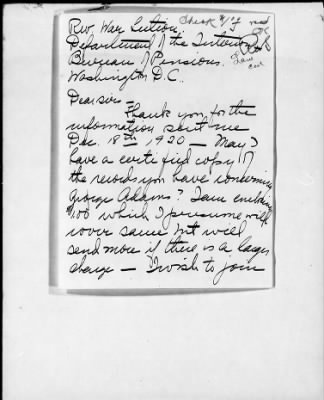 Rev War Section
Department of the Interior
Bureau of Pensions.
Washington D.C.
Dear sir
Thank you for the
information sent me
Dec. 18th 1920 — May I
have a certified copy of
the records you have concerning
George Adams? I am enclosing
$1.00 which I presume will
cover same but will
send more if there is a larger
charge — I wish to join